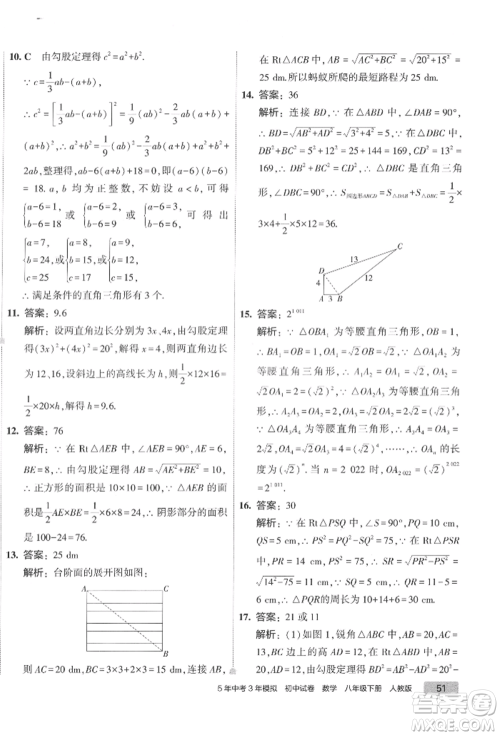 10. C 由勾股定理得 c²=a²+b².
∵ c=1/3ab-(a+b),
∴ c²=[1/3ab-(a+b)]²=1/9(ab)²-2/3ab×
(a+b)+(a+b)²,
∴ a²+b²=1/9(ab)²-2/3ab(a+b)+a²+b²+
2ab,整理得 ab-6(a+b)+18=0,即(a-6)(b-6)
=18. a,b 均为正整数,不妨设 a<b,可得
{a-6=1, b-6=18 或 {a-6=2, b-6=9 或 {a-6=3, b-6=6, 可得出
{a=7, b=24, c=25 或 {a=8, b=15, c=17 或 {a=9, b=12, c=15.
∴ 满足条件的直角三角形有 3 个.
11. 答案:9.6
解析:设两直角边长分别为 3x,4x,由勾股定理
得(3x)²+(4x)²=20²,解得 x=4,则两直角边长为
12、16,设斜边上的高线长为 h,则1/2×12×16=
1/2×20×h,解得 h=9.6.
12. 答案:76
解析:∵ 在 Rt△AEB 中,∠AEB=90°,AE=6,
BE=8,∴ 由勾股定理得 AB=√(AE²+BE²)=10,
∴ 正方形的面积是 10×10=100,∵ △AEB 的面
积是1/2AE×BE=1/2×6×8=24,∴ 阴影部分的面积
是 100-24=76.
13. 答案:25 dm
解析:台阶面的展开图如图:
A
C
B
则根据题意得 AC=20 dm,BC=15 dm,
在 Rt△ABC 中,AB=√(AC²+BC²)=√(20²+15²)=
25 dm,所以蚂蚁所爬的最短路程为 25 dm.
14. 答案:36
解析:连接 BD,如图,∵ ∠DAB=90°,
∴ BD=√(AB²+AD²)=√(3²+4²)=5,∵ BD²+
BC²=5²+12²=25+144=169,CD²=13²=
169,∴ BD²+BC²=CD²,∴ △DBC 是直角三角
形,∠DBC=90°,∴ S四边形ABCD=S△DAB+S△DBC=1/2×
3×4+1/2×5×12=36.
C
13
D
12
4
3
A
B
15. 答案:2^1 011
解析:∵ △OBA₁ 为等腰直角三角形,OB=1,
∴ BA₁=OB=1,OA₁=√2OB=√2,∵ △OA₁A₂
为等腰直角三角形,∴ A₁A₂=OA₁=√2,
OA₂=√2OA₁=2=(√2)²,∵ △OA₂A₃ 为等腰
直角三角形,∴ A₂A₃=OA₂=2,OA₃=√2OA₂=
2√2=(√2)³,∵ △OA₃A₄ 为等腰直角三角形,
∴ A₃A₄=OA₃=2√2,OA₄=√2OA₃=4=(√2)⁴,
……,∴ OAₙ 的长度为(√2)ⁿ,当 n=2 022 时,
OA₂ ₀₂₂=(√2)^2 022=2^1 011.
16. 答案:30
解析:∵ 在 Rt△PSQ 中,∠PSQ=90°,PS=QS,
PQ=10,∴ PS²+QS²=PQ²,∴ PS²=QS²=50,∵ 在
Rt△PSR 中,PR=14,∴ SR=√(PR²-PS²)=
√(14²-75)=11,∴ QR=QS+SR=5+11=16,
∴ △PQR 的周长为 10+14+6=30.
17. 答案:21 或 11
解析:∵ 在 Rt△ABD 中,AB=17,AD=8,
5 年中考 3 年模拟 初中试卷 数学 八年级下册 人教版 51